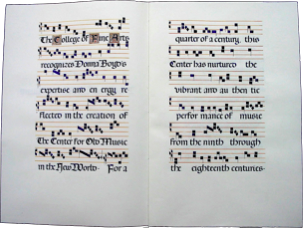 The College of Fine Arts
recognizes Donna Boyd's
expertise and en ergy re
flected in the creation of
the Center for Old Music
in the New World. For a
quarter of a century, this
Center has nurtured the
vibrant and au then tic
perfor mance of music
from the ninth through
the eighteenth centuries.